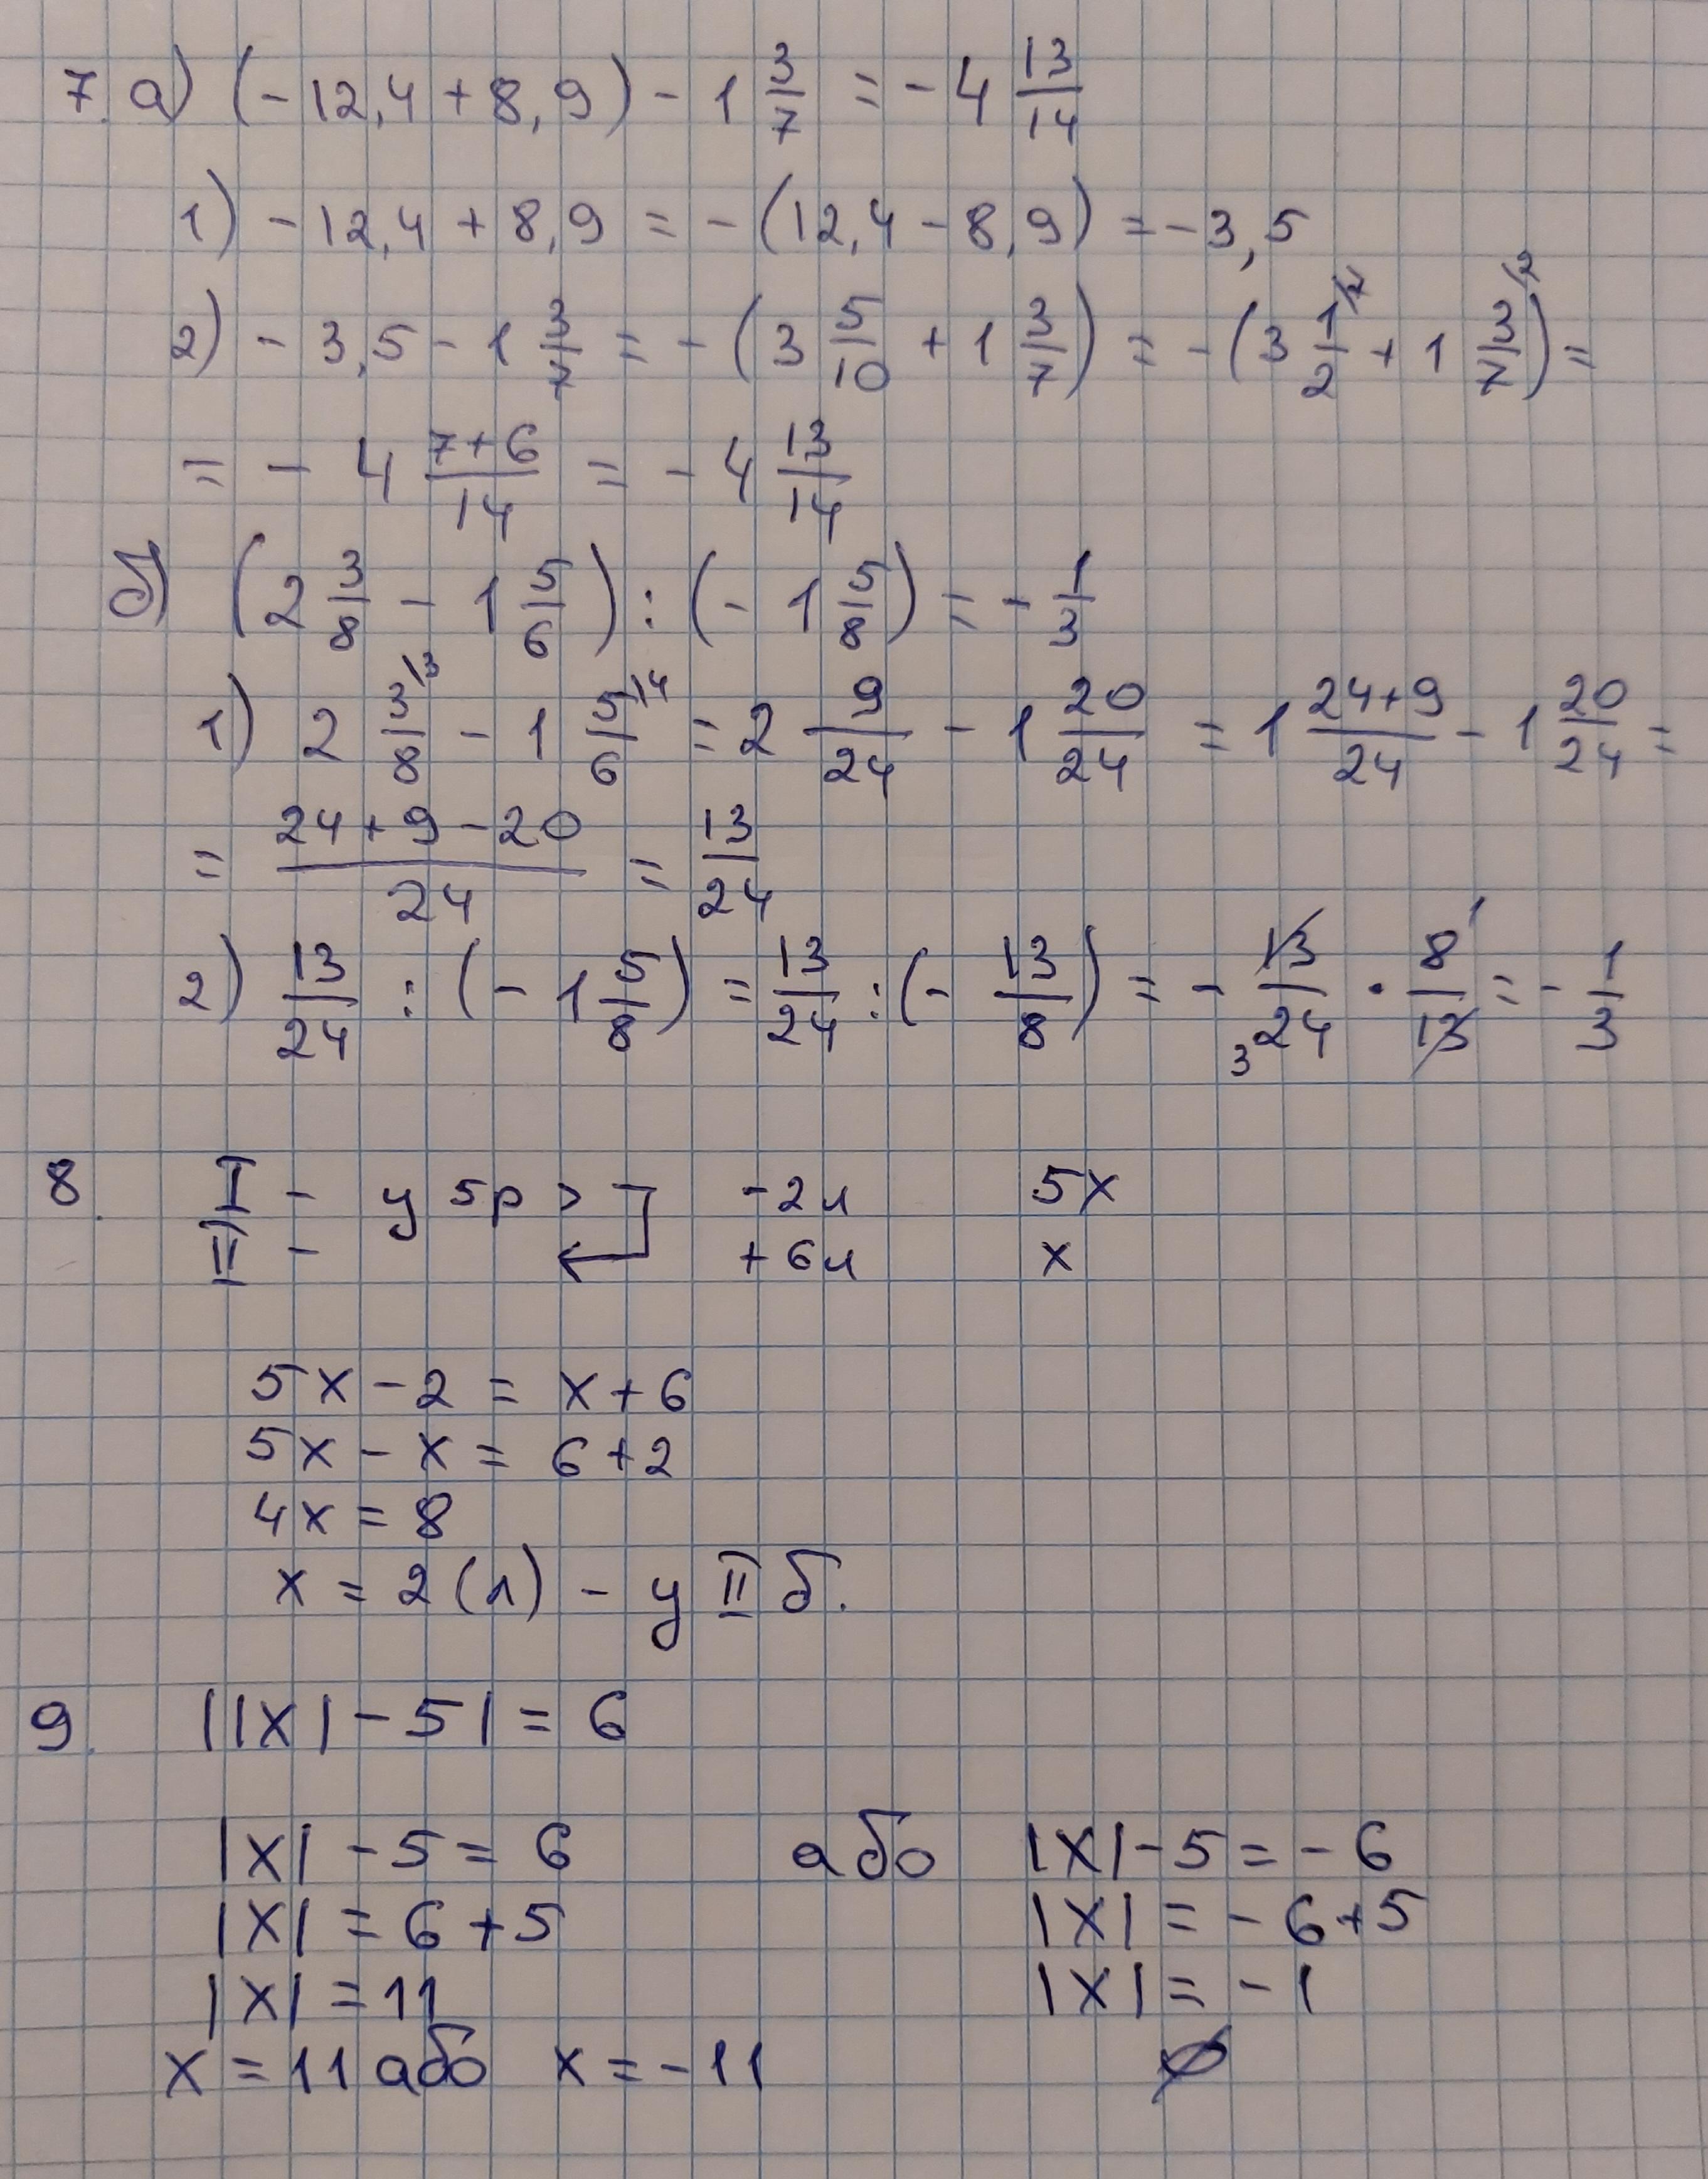 7. а) (-12,4 + 8,9) - 1 3/7 = -4 13/14
1) -12,4 + 8,9 = -(12,4 - 8,9) = -3,5
2) -3,5 - 1 3/7 = -(3 5/10 + 1 3/7) = -(3 1/2 \7 + 1 3/7 \2) =
= -4 (7+6)/14 = -4 13/14
б) (2 3/8 - 1 5/6) : (-1 5/8) = -1/3
1) 2 3/8 \3 - 1 5/6 \4 = 2 9/24 - 1 20/24 = 1 (24+9)/24 - 1 20/24 =
= (24+9-20)/24 = 13/24
2) 13/24 : (-1 5/8) = 13/24 : (-13/8) = -13/24 3 · 8 1/13 = -1/3
8. I - у 5р > -2л 5x
II - +6л x
5x - 2 = x + 6
5x - x = 6 + 2
4x = 8
x = 2 (л) - у II б.
9. ||x| - 5| = 6
|x| - 5 = 6 або |x| - 5 = -6
|x| = 6 + 5 |x| = -6 + 5
|x| = 11 |x| = -1
x = 11 або x = -11 ∅